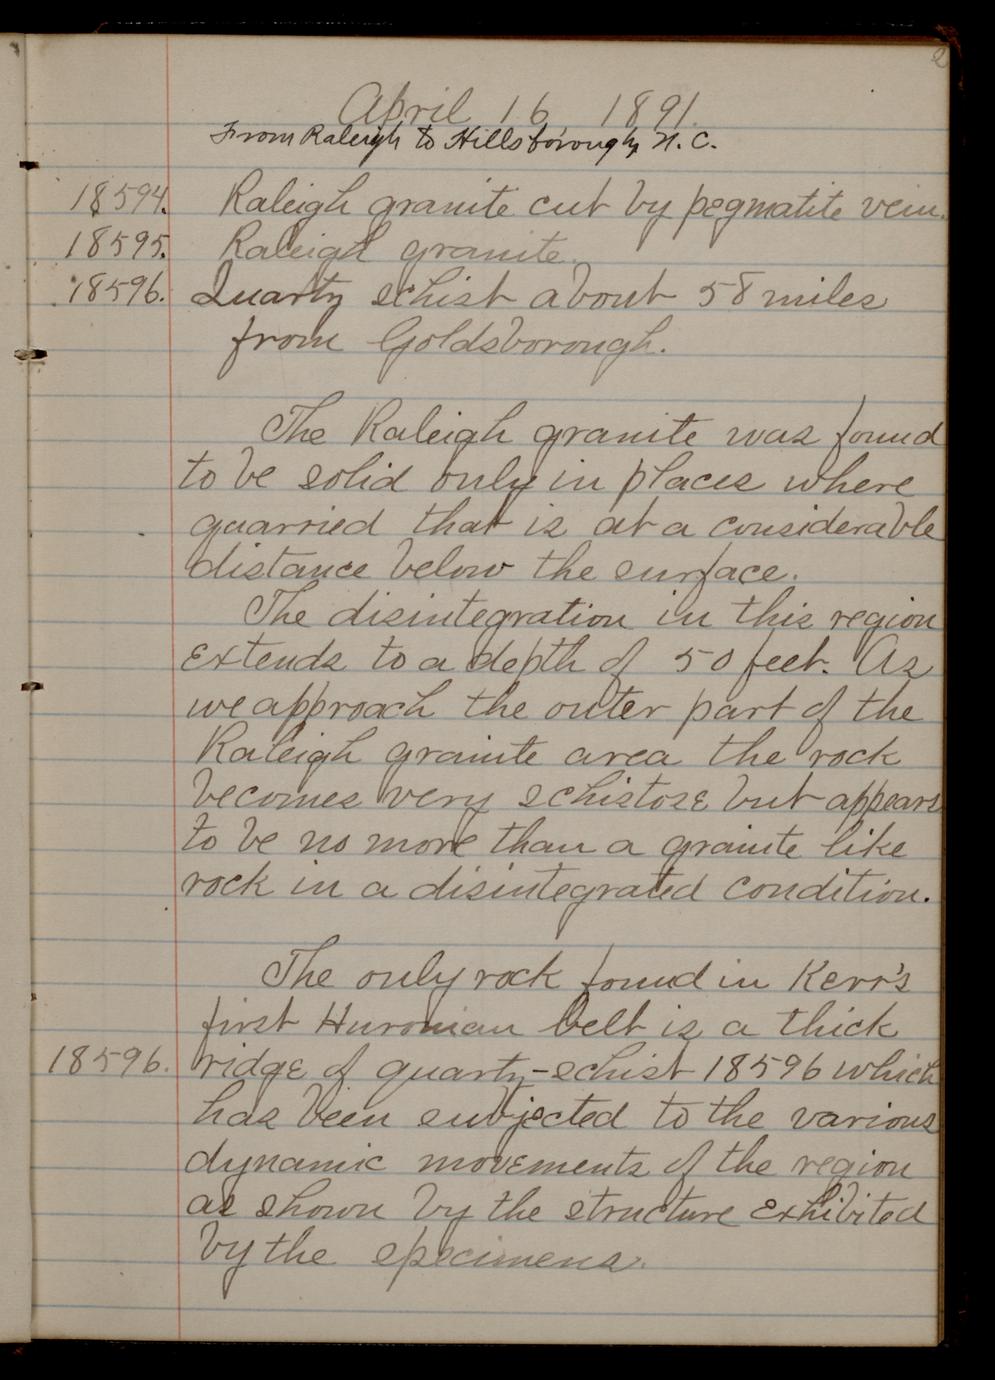 2
April 16 1891.
From Raleigh to Hillsborough, N. C.
18594. Raleigh granite cut by pegmatite vein.
18595. Raleigh granite.
18596. Quartz schist about 58 miles
from Goldsborough.
The Raleigh granite was found
to be solid only in places where
quarried that is at a considerable
distance below the surface.
The disintegration in this region
extends to a depth of 50 feet. As
we approach the outer part of the
Raleigh granite area the rock
becomes very schistose but appears
to be no more than a granite like
rock in a disintegrated condition.
The only rock found in Kerr's
first Huronian belt is a thick
18596. ridge of quartz-schist 18596 which
has been subjected to the various
dynamic movements of the region
as shown by the structure exhibited
by the specimens.